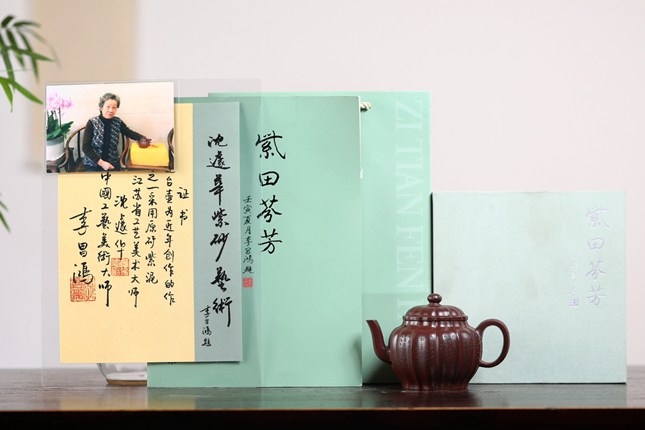 证书
台壶为近年创作的作
之一采用原矿紫泥
江苏省工艺美术大师
沈遽华
中國工艺美術大师
李昌鴻
沈遽華紫砂藝術
李昌鴻題
紫田芬芳
壬寅夏月李昌鴻題
ZI TIAN FEN
紫田芬芳